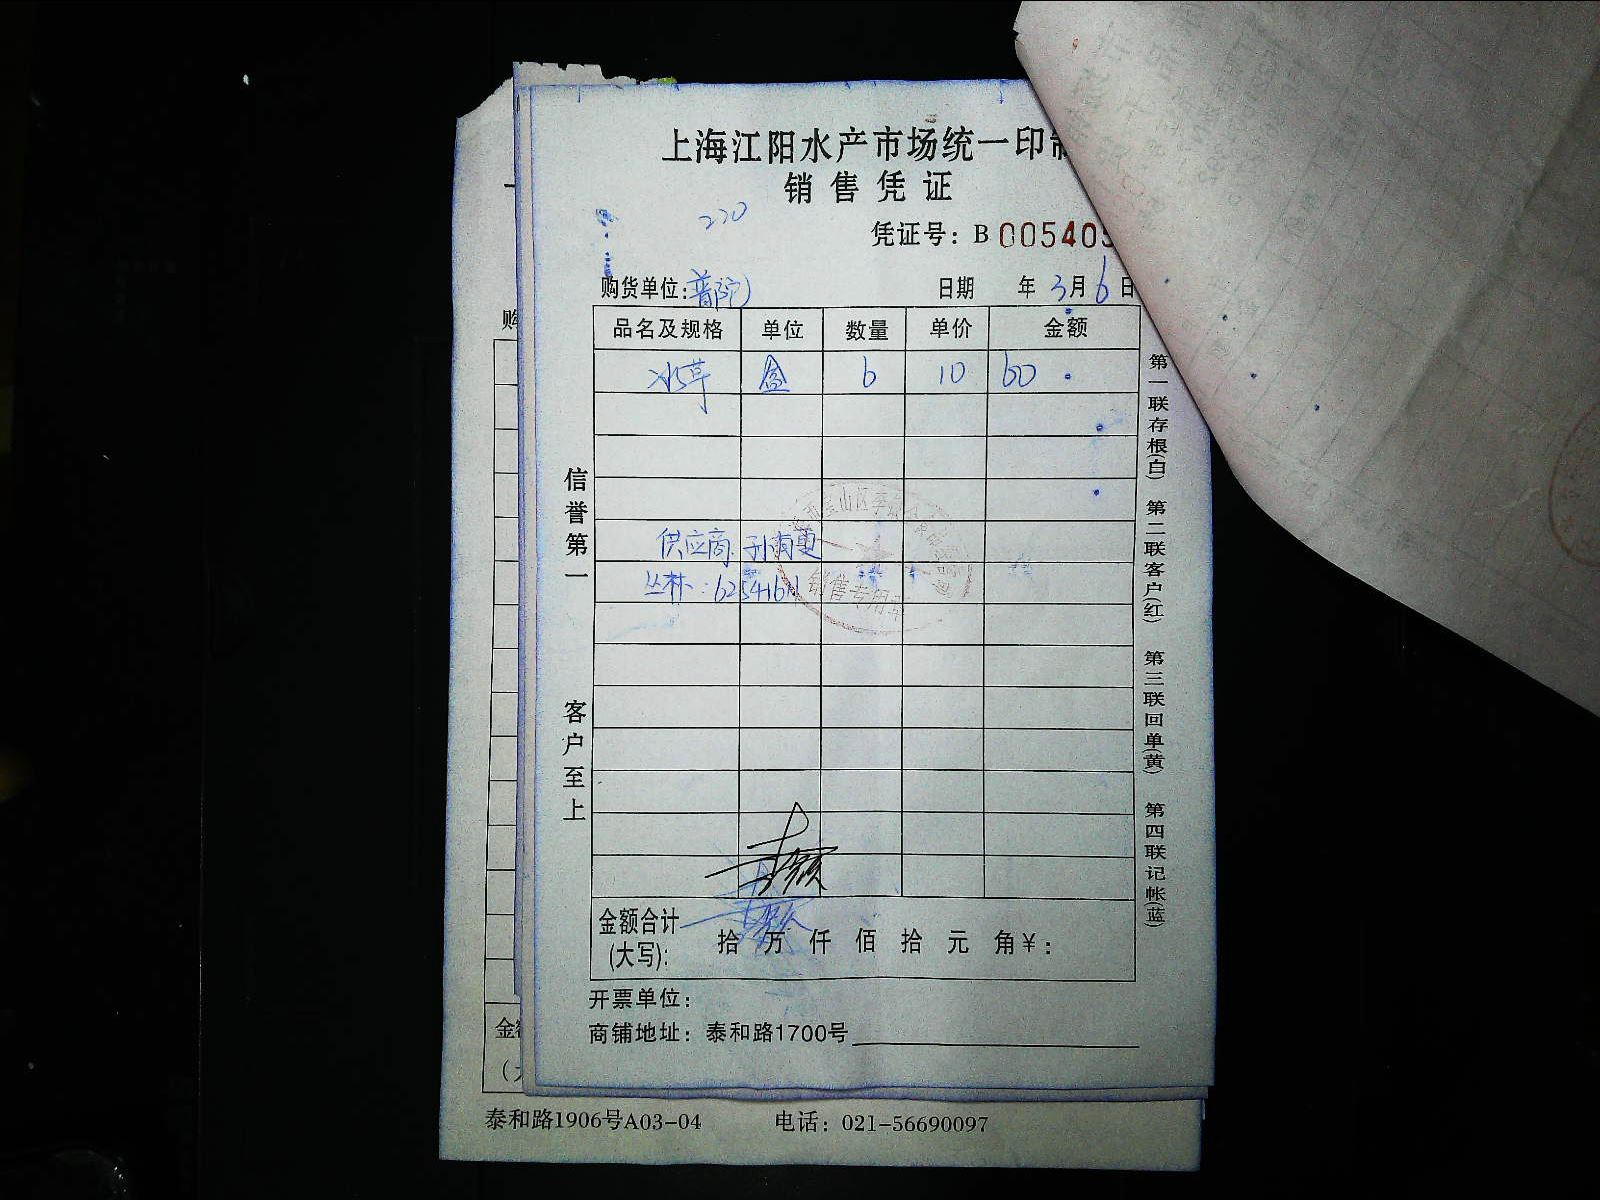 上海江阳水产市场统一印制
销售凭证
220
凭证号：B 005405
购货单位：普陀
日期 年 3月 6日
品名及规格 单位 数量 单价 金额
水草 盒 6 10 60
供应商
丛林：
销售专用章
信誉第一
客户至上
第一联存根(白) 第二联客户(红) 第三联回单(黄) 第四联记帐(蓝)
金额合计
(大写)： 拾 万 仟 佰 拾 元 角￥：
开票单位：
商铺地址：泰和路1700号
购
金额
泰和路1906号A03-04 电话：021-56690097